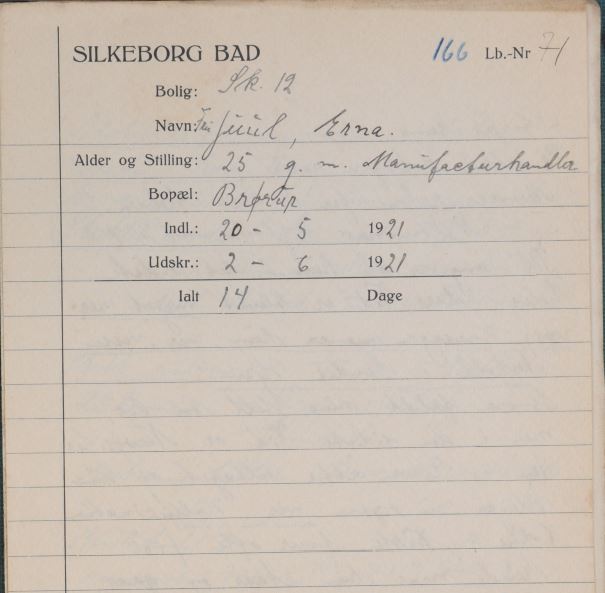 SILKEBORG BAD 166 Lb.-Nr 71
Bolig: Sk. 12
Navn: Fru Juul, Erna.
Alder og Stilling: 25 g. m. Manufacturhandler
Bopæl: Brørup
Indl.: 20 - 5 1921
Udskr.: 2 - 6 1921
Ialt 14 Dage